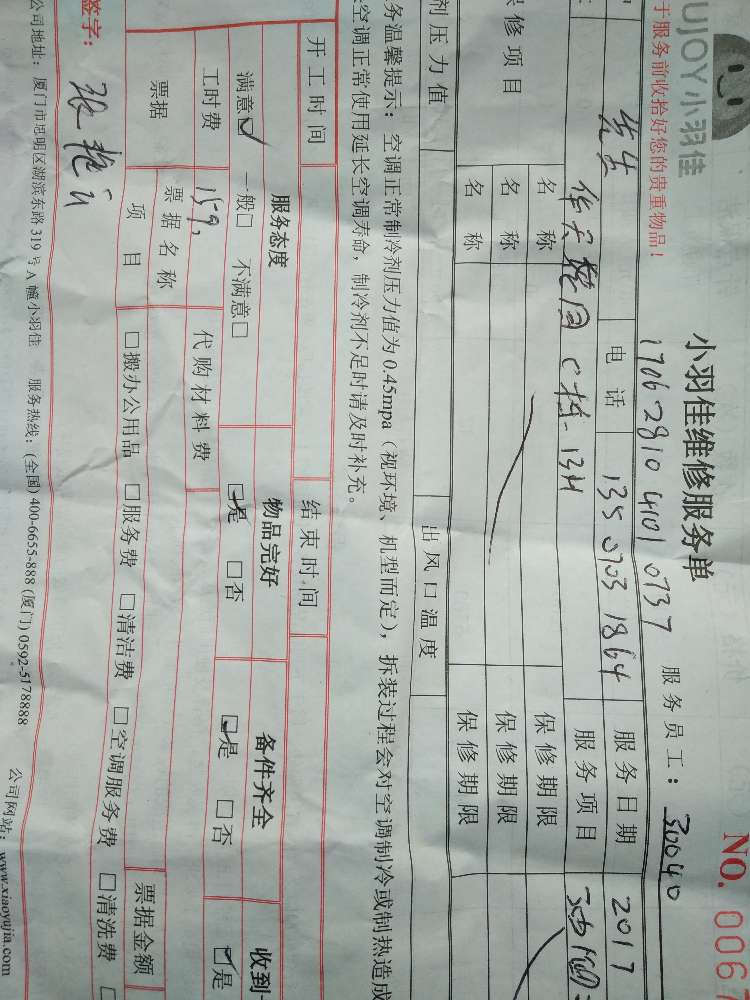 UJOY小羽佳
小羽佳维修服务单
No. 0067
于服务前收拾好您的贵重物品！
1706 2810 4101 0737
服务员工：30040
先生
电话
135 0703 1864
服务日期
2017
C栋-13H
服务项目
修项目
名称
保修期限
名称
保修期限
名称
保修期限
剂压力值
出风口温度
务温馨提示：空调正常制冷剂压力值为0.45mpa（视环境、机型而定），拆装过程会对空调制冷或制热造成
空调正常使用延长空调寿命，制冷剂不足时请及时补充。
开工时间
结束时间
服务态度
物品完好
备件齐全
收到
满意☑ 一般□ 不满意□
☑是 □否
☑是 □否
☑是
工时费
159
代购材料费
票据
票据名称
票据金额
项目
□搬办公用品 □服务费 □清洁费 □空调服务费 □清洗费 □
签字：
公司地址：厦门市思明区湖滨东路319号A幢小羽佳 服务热线：(全国) 400-6655-888 (厦门) 0592-5178888 公司网站：www.xiaoyujia.com